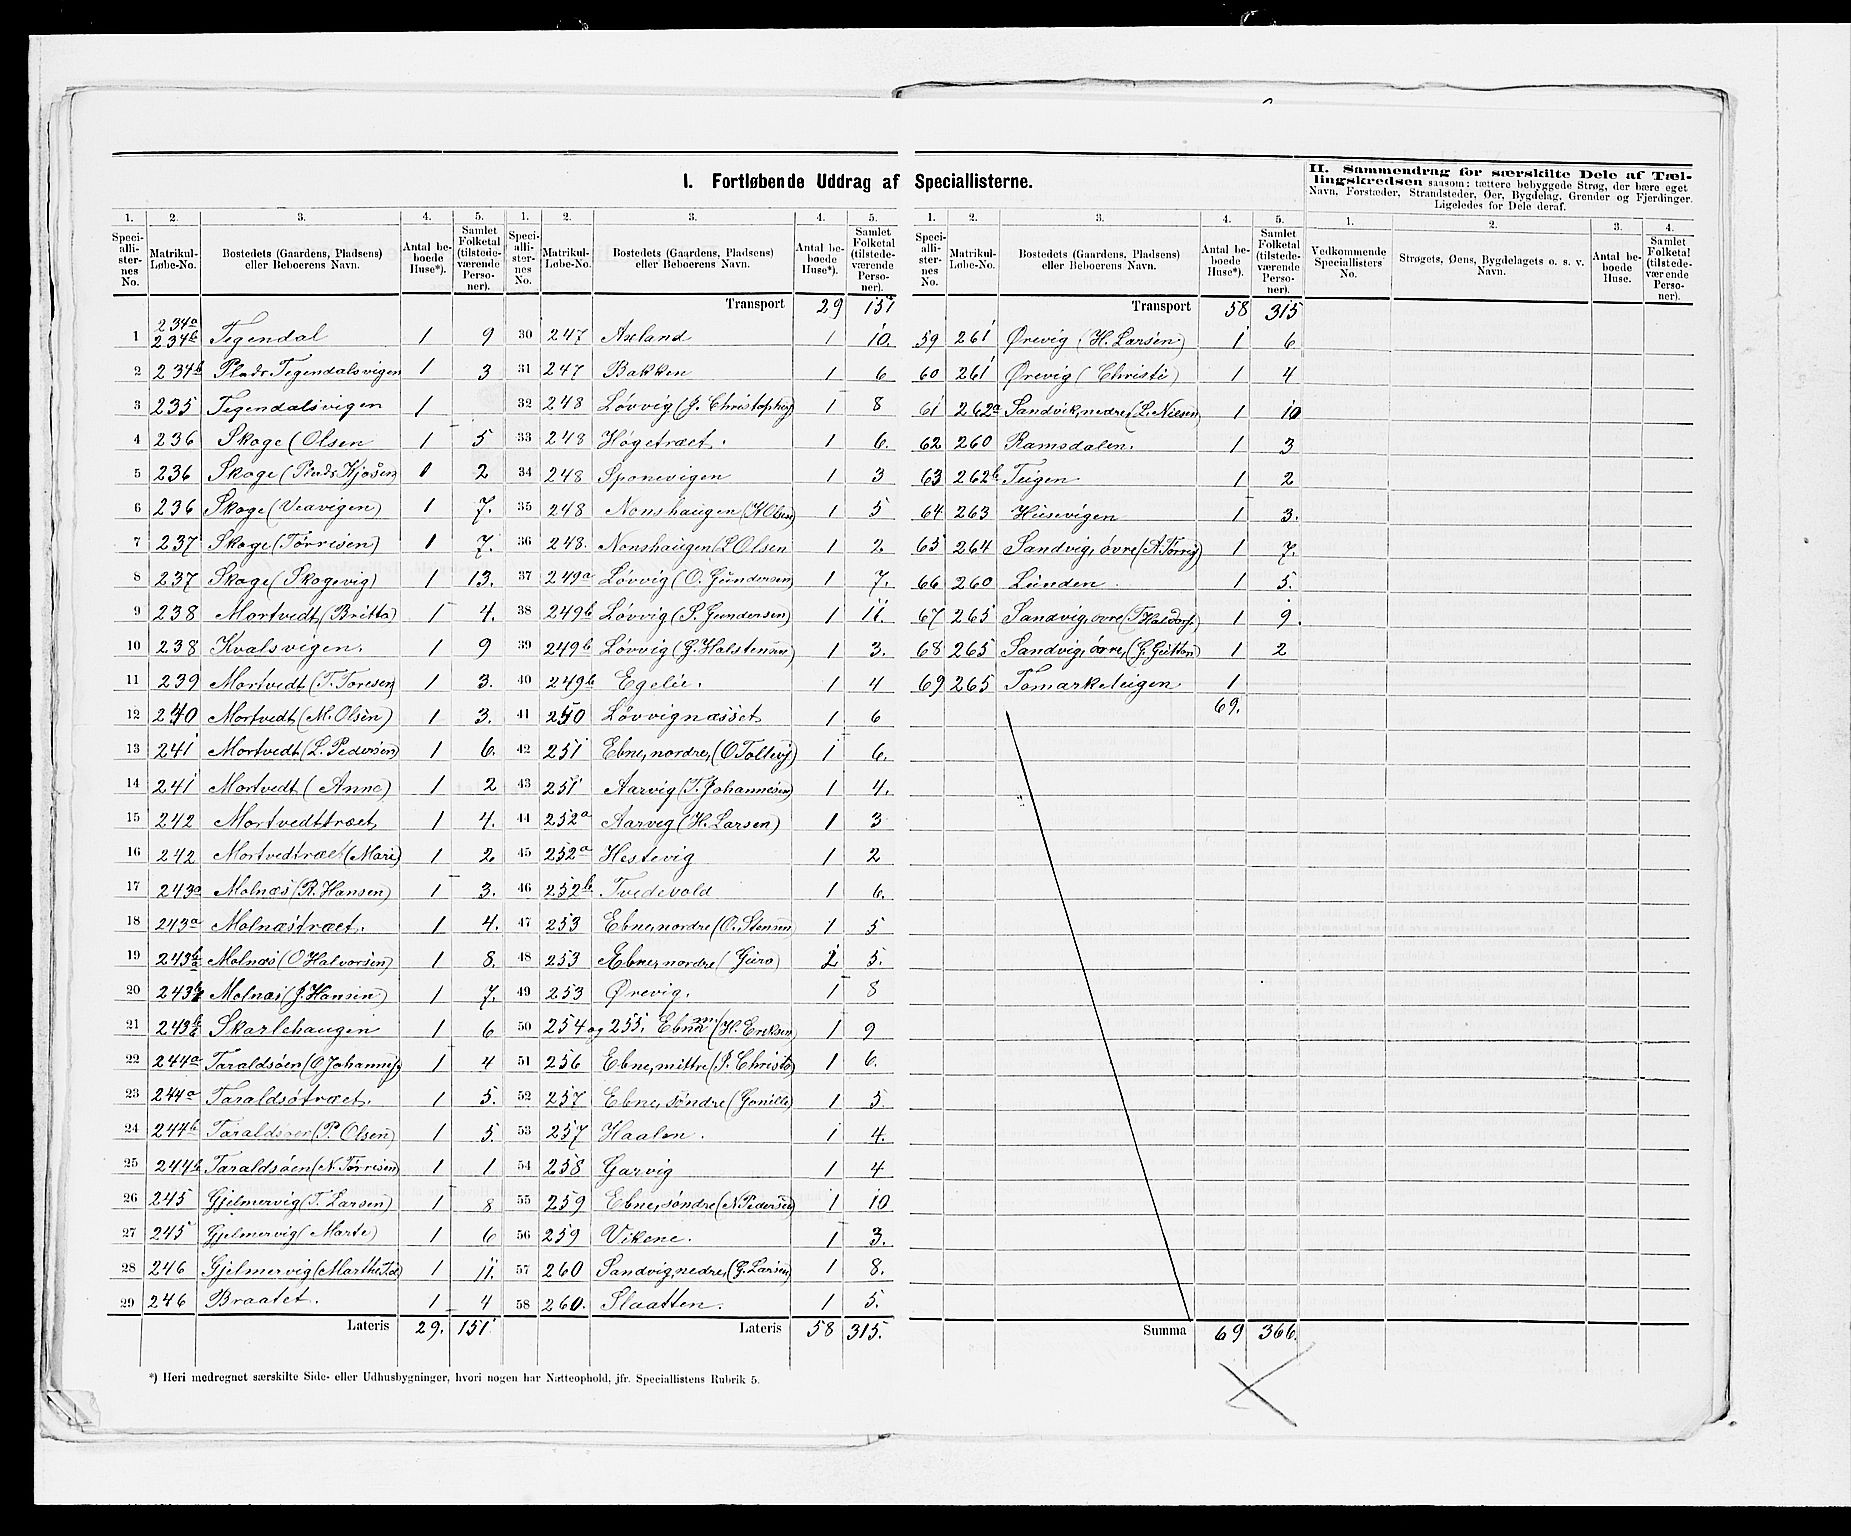 I. Fortløbende Uddrag af Speciallisterne.
1. 2. 3. 4. 5.
Speciallisternes No. Matrikul-Løbe-No. Bostedets (Gaardens, Pladsens) eller Beboerens Navn. Antal beboede Huse*). Samlet Folketal (tilstedeværende Personer).
1 234a 234b Tegendal 1 9
2 234b Plads Tegendalsvigen 1 3
3 235 Tegendalsvigen 1
4 236 Skoge (Olsen 1 5
5 236 Skoge (Plads Kjosen) 1 2
6 236 Skoge (Veavigen) 1 7.
7 237 Skoge (Tørresen) 1 7.
8 237 Skoge (Skogevig) 1 13.
9 238 Mortvedt (Britta) 1 4.
10 238 Kvalsvigen. 1 9
11 239 Mortvedt (T. Toresen) 1 3.
12 240 Mortvedt (M. Olsen) 1 3.
13 241 Mortvedt (L. Pedersen) 1 6.
14 241 Mortvedt (Anne) 1 2
15 242 Mortvedttræet 1 4.
16 242 Mortvedtræet (Mari) 1 2
17 243a Molnæs (R. Hansen) 1 3.
18 243a Molnæstræet. 1 4.
19 243b Molnæs (O Halvorsen) 1 8.
20 243b Molnæs (J. Hansen) 1 7.
21 243b Skarlehaugen 1 6
22 244a Taraldsøen (O Johannes. 1 4
23 244a Taraldsøtræet. 1 5.
24 244b Taraldsøen (P. Olsen) 1 5.
25 244b Taraldsøen (N. Tørresen) 1 1
26 245 Gjelmervig (T. Larsen) 1 8
27 245 Gjelmervig (Marte) 1 6
28 246 Gjelmervig (Marthe 1 11.
29 246 Braatet. 1 4
Lateris 29. 151
1. 2. 3. 4. 5.
Speciallisternes No. Matrikul-Løbe-No. Bostedets (Gaardens, Pladsens) eller Beboerens Navn. Antal beboede Huse*). Samlet Folketal (tilstedeværende Personer).
Transport 29 151
30 247 Axland 1 10.
31 247 Bakken 1 6
32 248 Løvvig (J. Christophers) 1 8
33 248 Høgetræet. 1 6.
34 248 Sponevigen 1 3
35 248 Nonshaugen (K Olsen) 1 5
36 248. Nonshaugen (L Olsen 1 2.
37 249a Løvvig (O. Gundersen) 1 7.
38 249b Løvvig (S. Gundersen) 1 11.
39 249b Løvvig (G. Halstensen) 1 3.
40 249b Egelie. 1 4
41 250 Løvvignæsset 1 6
42 251 Ebne, nordre, (O Tollevs) 1 6.
43 251 Aarvig (T. Johannesen) 1 4.
44 252a Aarvig (H. Larsen) 1 3
45 252a Hestevig 1 2
46 252b Tvedevold 1 6.
47 253 Ebne, nordre (O. Stensen 1 5
48 253 Ebne, nordre (Guro) 1 5.
49 253 Ørevig. 1 8
50 254 og 255. Ebne m. (H. Eriksen 1 9
51 256 Ebne, mittre (P. Christo) 1 6.
52 257 Ebne, søndre (Gonille) 1 5.
53 257 Haalen. 1 4.
54 258 Garvig 1 4
55 259 Ebne, søndre (N. Pedersen) 1 10
56 259 Vikene. 1 3.
57 260 Sandvig, nedre, (G. Larsen) 1 8.
58 260. Slaatten. 1 5.
Lateris 58 315.
*) Heri medregnet særskilte Side- eller Udhusbygninger, hvori nogen har Natteophold, jfr. Speciallistens Rubrik 5.
1. 2. 3. 4. 5.
Speciallisternes No. Matrikul-Løbe-No. Bostedets (Gaardens, Pladsens) eller Beboerens Navn. Antal beboede Huse*). Samlet Folketal (tilstedeværende Personer).
Transport 58 315
59 261 Ørevig (H. Larsen) 1 6
60 261 Ørevig (Christi) 1 4
61 262a Sandvik, nedre, (L. Nilsen, 1 10
62 260 Ramsdalen. 1 3
63 262b Teigen 1 2
64 263 Husevigen 1 3.
65 264 Sandvig, øvre (A. Tørris) 1 7.
66 260 Lunden 1 5.
67 265 Sandvig, øvre (T Haldors.) 1 9.
68 265 Sandvig, øvre, (G. Guttorm) 1 2
69 265 Tomarkteigen 1
69.
Summa 69 366.
II. Sammendrag for særskilte Dele af Tællingskredsen saasom: tættere bebyggede Strøg, der bære eget Navn, Forstæder, Strandsteder, Øer, Bygdelag, Grender og Fjerdinger. Ligeledes for Dele deraf.
1. 2. 3. 4.
Vedkommende Speciallisters No. Strøgets, Øens, Bygdelagets o. s. v. Navn. Antal beboede Huse. Samlet Folketal (tilstedeværende Personer).